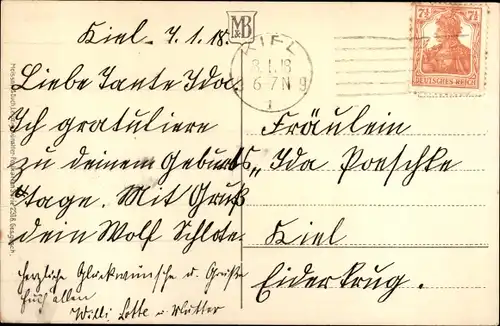 MB
Kiel. 7.1.18.
Liebe Tante Ida.
Ich gratuliere
zu deinem Geburts„
tage. Mit Gruß
dein Wolf Schlote.
herzliche Glückwünsche u. Grüße
Euch allen
Willi Lotte u. Mutter
KIEL
8.1.18
6-7N
1
7½
7½
DEUTSCHES REICH
Fräulein
Ida Poeschke
Kiel
Eiderkrug.